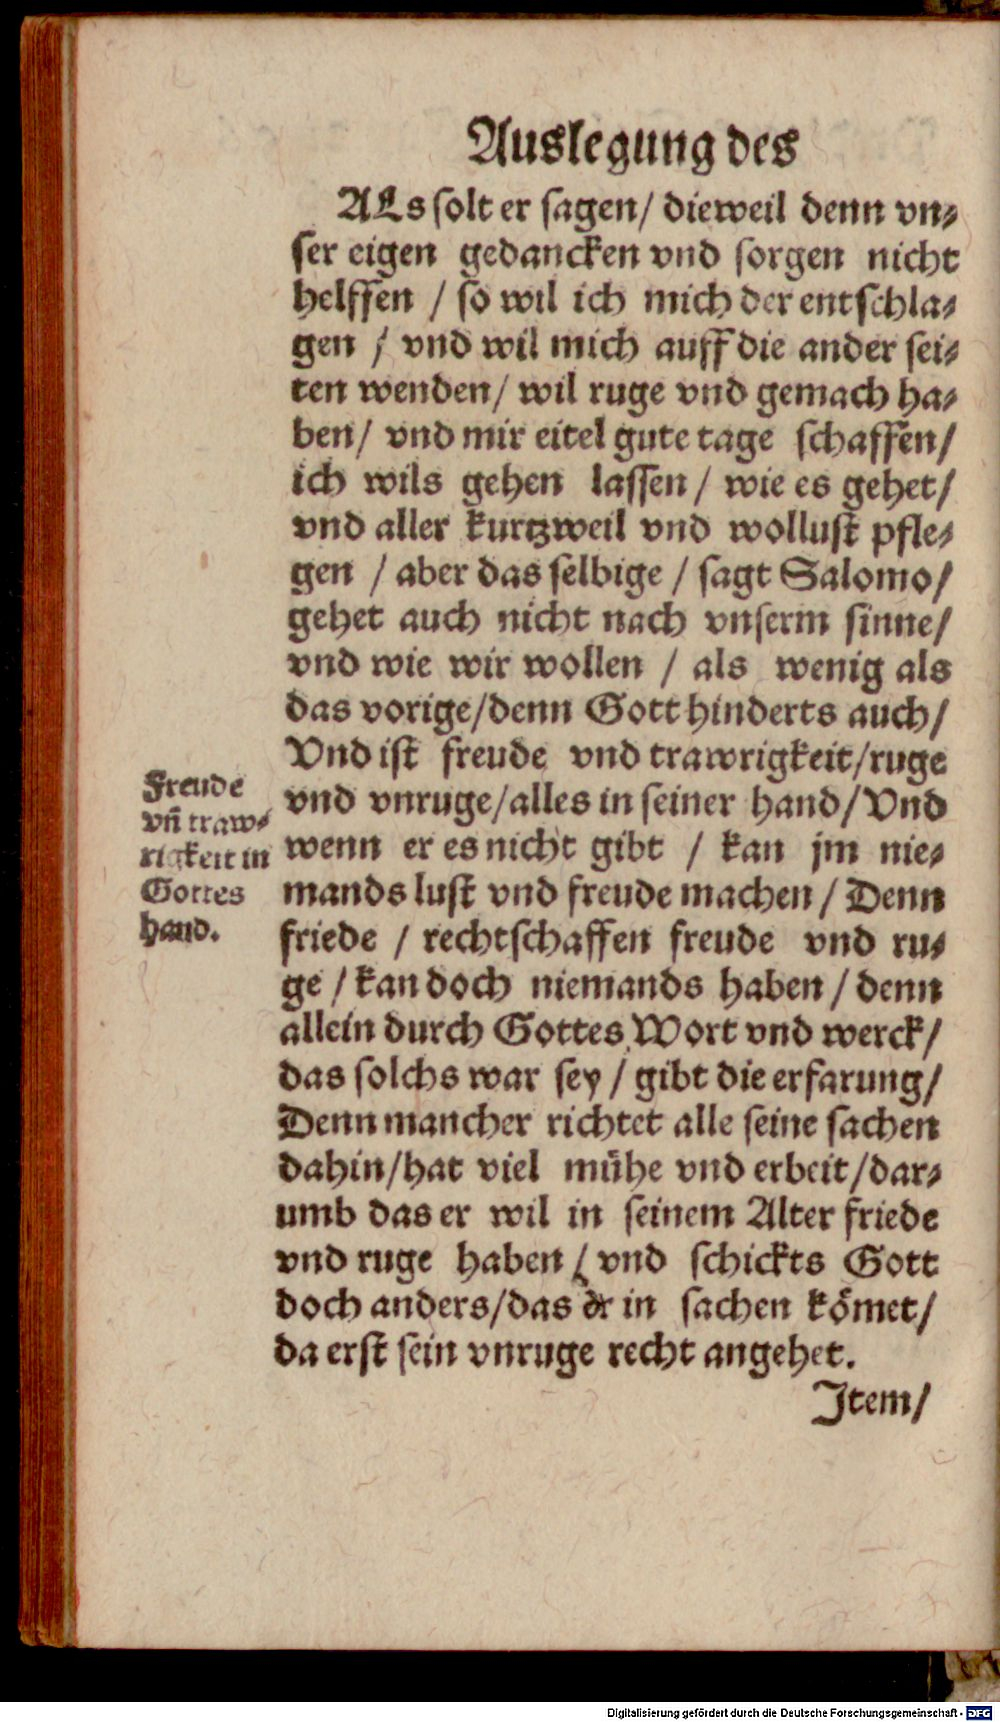 Auslegung des
ALs solt er sagen/ dieweil denn vn⸗
ser eigen gedancken vnd sorgen nicht
helffen / so wil ich mich der entschla⸗
gen / vnd wil mich auff die ander sei⸗
ten wenden/ wil ruge vnd gemach ha⸗
ben/ vnd mir eitel gute tage schaffen/
ich wils gehen lassen / wie es gehet/
vnd aller kurtzweil vnd wollust pfle⸗
gen / aber das selbige / sagt Salomo/
gehet auch nicht nach vnserm sinne/
vnd wie wir wollen / als wenig als
das vorige/denn Gott hinderts auch/
Vnd ist freude vnd trawrigkeit/ruge
vnd vnruge/alles in seiner hand/Vnd
wenn er es nicht gibt / kan jm nie⸗
mands lust vnd freude machen / Denn
friede / rechtschaffen freude vnd ru⸗
ge / kan doch niemands haben / denn
allein durch Gottes Wort vnd werck/
das solchs war sey / gibt die erfarung/
Denn mancher richtet alle seine sachen
dahin/hat viel mühe vnd erbeit/dar⸗
umb das er wil in seinem Alter friede
vnd ruge haben / vnd schickts Gott
doch anders/das er in sachen kömet/
da erst sein vnruge recht angehet.
Item/
Freude
vñ traw⸗
rigkeit in
Gottes
hand.
Digitalisierung gefördert durch die Deutsche Forschungsgemeinschaft - DFG